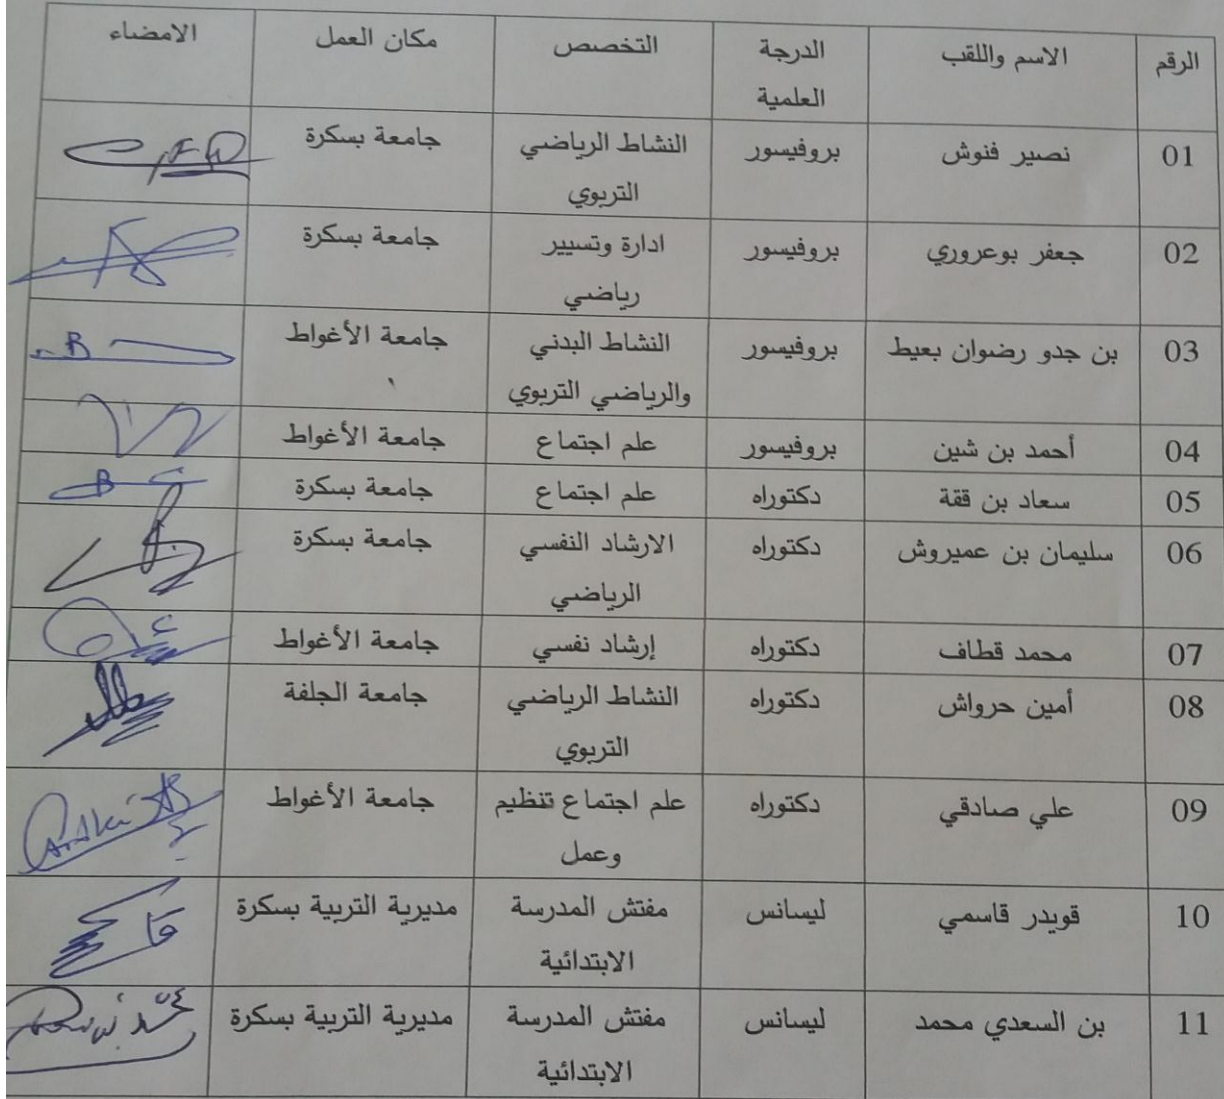 الرقم الاسم واللقب الدرجة العلمية التخصص مكان العمل الامضاء
01 نصير فنوش بروفيسور النشاط الرياضي التربوي جامعة بسكرة
02 جعفر بوعروري بروفيسور ادارة وتسيير رياضي جامعة بسكرة
03 بن جدو رضوان بعيط بروفيسور النشاط البدني والرياضي التربوي جامعة الأغواط
04 أحمد بن شين بروفيسور علم اجتماع جامعة الأغواط
05 سعاد بن ققة دكتوراه علم اجتماع جامعة بسكرة
06 سليمان بن عميروش دكتوراه الارشاد النفسي الرياضي جامعة بسكرة
07 محمد قطاف دكتوراه إرشاد نفسي جامعة الأغواط
08 أمين حرواش دكتوراه النشاط الرياضي التربوي جامعة الجلفة
09 علي صادقي دكتوراه علم اجتماع تنظيم وعمل جامعة الأغواط
10 قويدر قاسمي ليسانس مفتش المدرسة الابتدائية مديرية التربية بسكرة
11 بن السعدي محمد ليسانس مفتش المدرسة الابتدائية مديرية التربية بسكرة